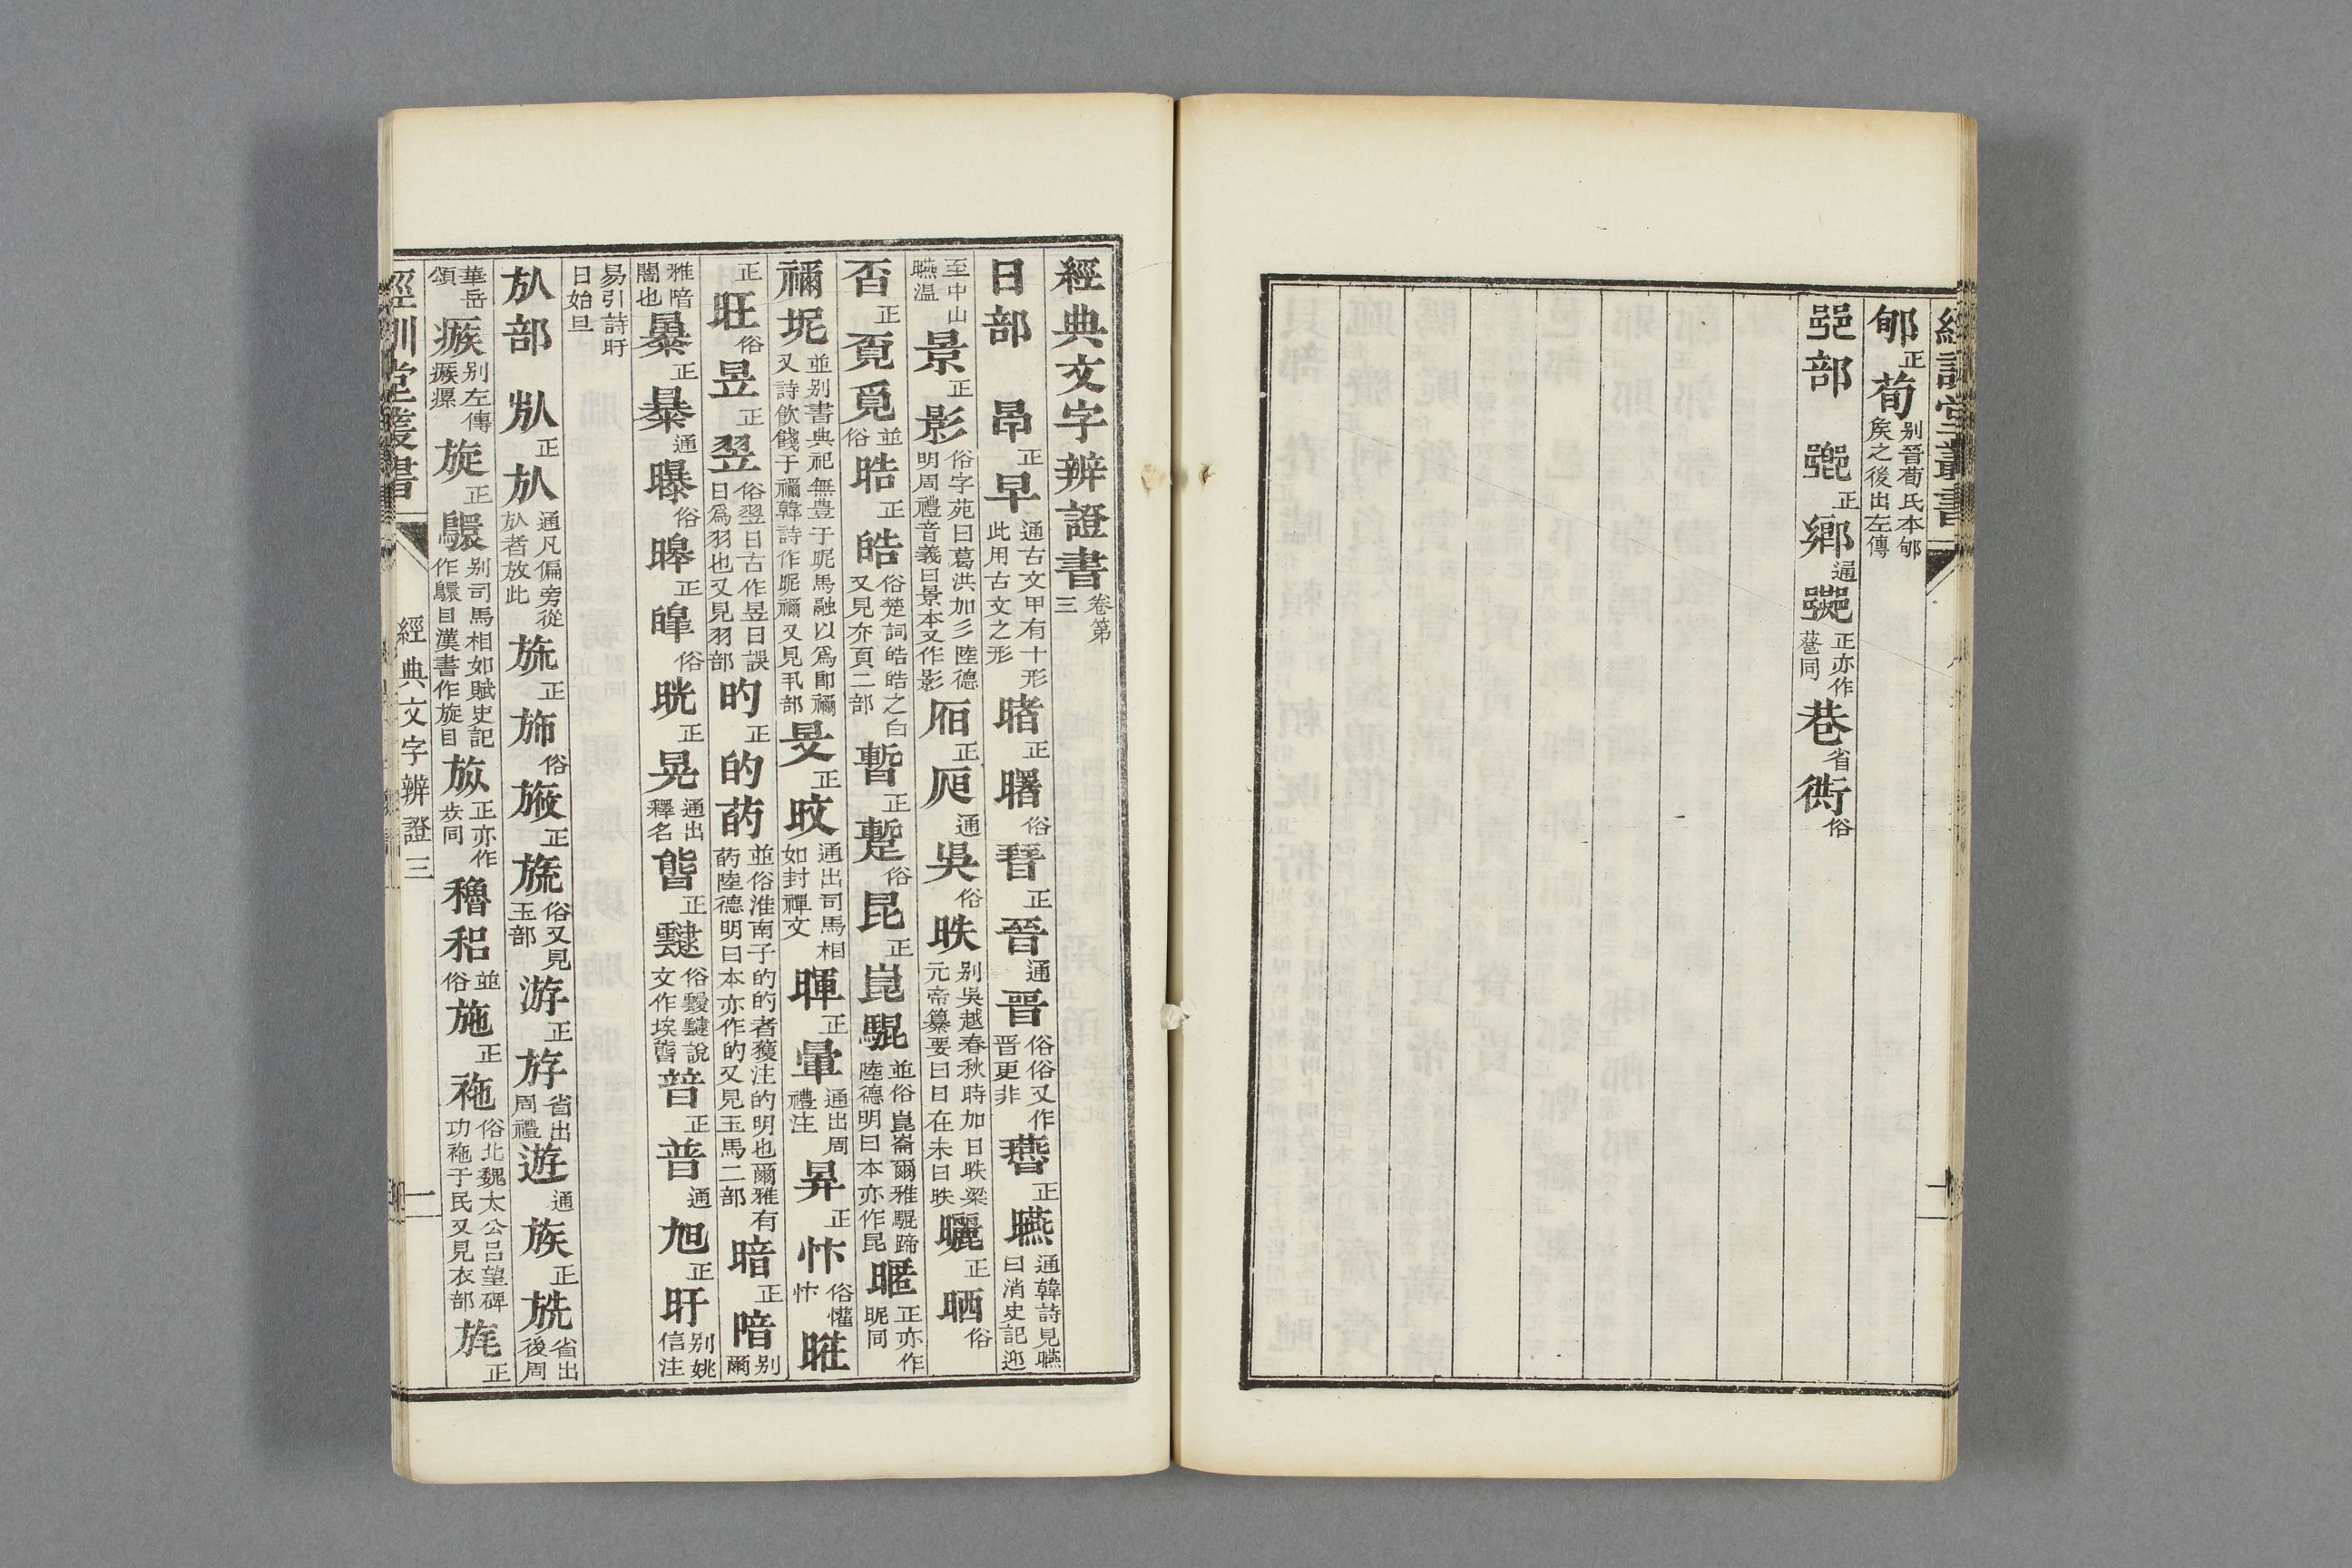 郇正荀别晉荀氏本郇矦之後出左傳
𨛜部 正鄉通 正亦作 同巷省衖俗
經典文字辨證書卷第三
日部 昂正早通古文甲有十形此用古文之形 睹正曙俗 正晉通晋俗俗又作晋更非 正曣通韓詩見曣曰消史記迎
至中山曣温景正影俗字苑曰葛洪加彡陸德明周禮音義曰景本又作影 正 通吳俗昳别吳越春秋時加日昳梁元帝纂要曰日在未曰昳曬正晒俗
否正覔覓並俗晧正皓俗楚詞皓皓之白又見夰頁二部暫正蹔俗昆正崑騉並俗崑崙爾雅騉蹄陸德明曰本亦作昆暱正亦作昵同
禰坭並别書典祀無豊于昵馬融以爲卽禰又詩飲餞于禰韓詩作昵禰又見 部 旻正旼通出司馬相如封禪文 暉正暈通出周禮注 昇正忭俗懽忭 暀
正旺俗昱正翌俗翌日古作昱日誤日爲羽也又見羽部旳正的菂並俗淮南子的的者獲注的明也爾雅有菂陸德明曰本亦作的又見玉馬二部暗正 别爾
雅暗闇也 正暴通曝俗皞正 俗晄正晃通出釋名 正靆俗靉靆說文作埃 㬱正普通旭正旴别姚信注
易引詩旴日始旦
㫃部 正㫃通凡偏旁從㫃者放此 旒正 俗 正 俗又見玉部 游正斿省出周禮遊通族正 省出後周
華岳頌瘯别左傳瘯瘰 旋正 别司馬相如賦史記作 目漢書作旋目 正亦作 同 穭稆並俗施正 俗北魏太公吕望碑功 于民又見衣部旄正
經訓堂叢書 經典文字辨證三 一